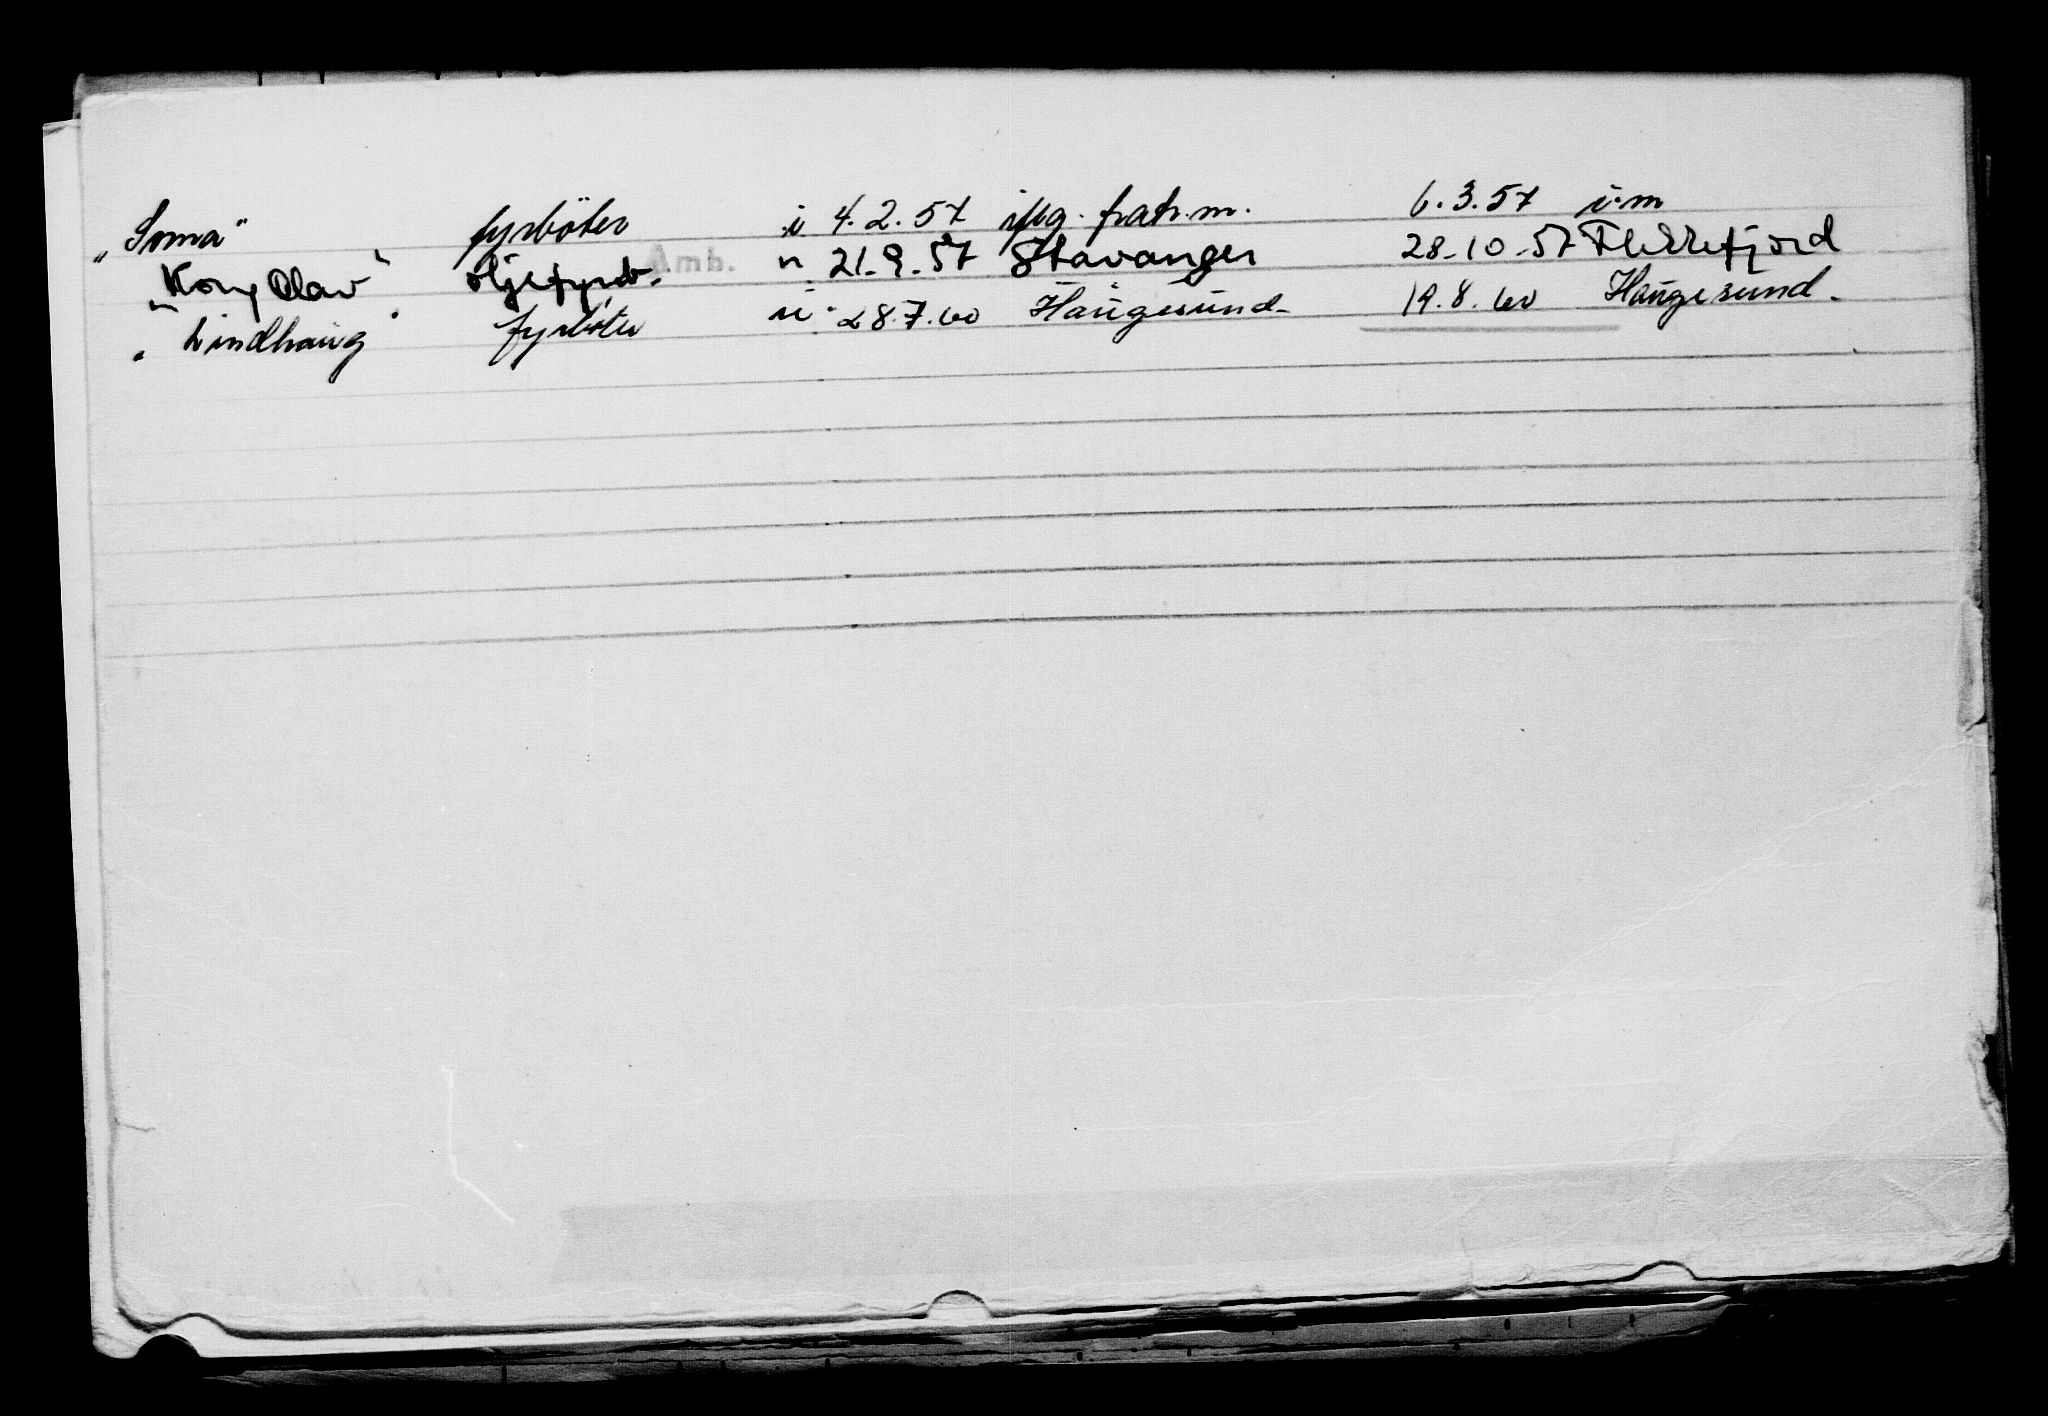 "Soma" fyrbøter i 4.2.57 iflg. patr.m. 6.3.57 i.m
"Kong Olav" oljefyrb. Amb. n 21.9.57 Stavanger 28.10.57 Flekkefjord
"Lindhaug" fyrbøter u 28.7.60 Haugesund 19.8.60 Haugesund.